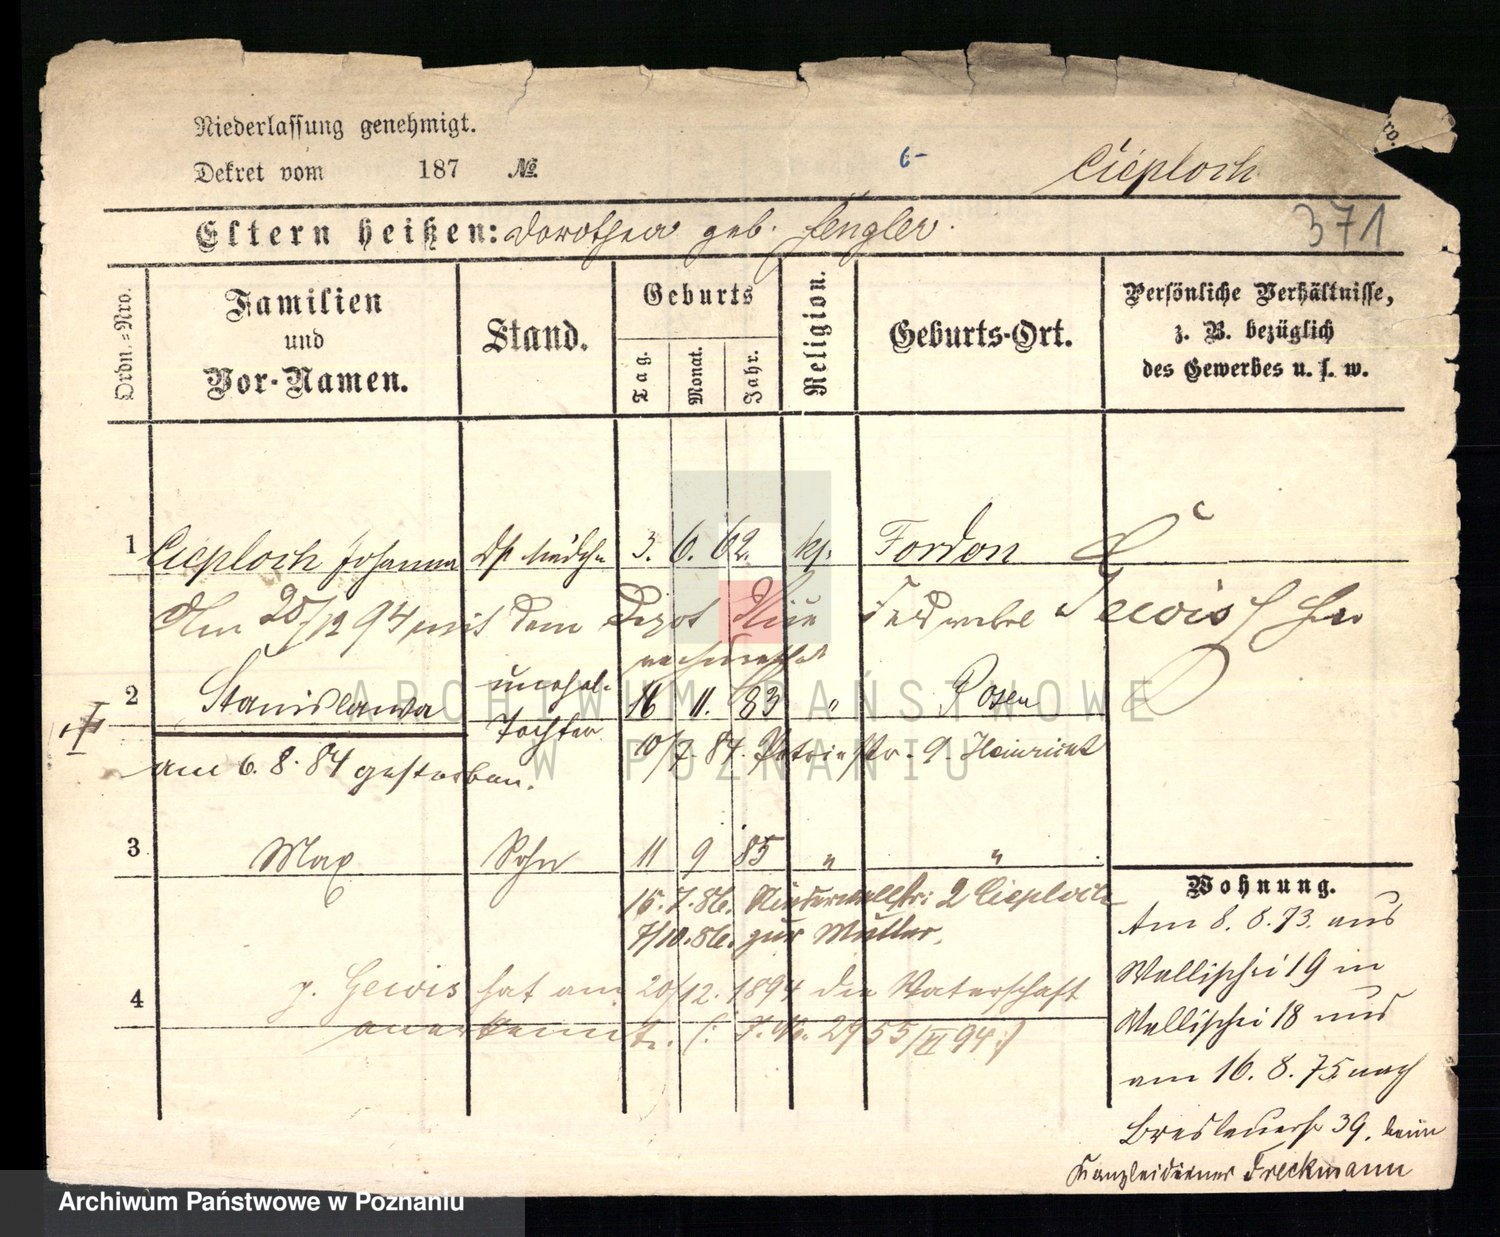 Niederlassung genehmigt.
Dekret vom 187 №
6-
Cieploch
ro.
Eltern heißen: Dorothea geb. Hengler.
371
Ordn.-Nro.
Familien
und
Vor-Namen.
Stand.
Geburts
Tag.
Monat.
Jahr.
Religion.
Geburts-Ort.
Persönliche Verhältnisse,
z. B. bezüglich
des Gewerbes u. s. w.
1 Cieploch Johanna 3. 6. 62. k. Fordon
Am 20/12 94 mit dem Depot Feldwebel Gewis
2 Stanislawa unehel. 16 11. 83 " Posen
Tochter
10/7. 84. 9. Heinrich
am 6. 8. 84 gestorben.
3 Max Sohn 11 9 85 " "
15. 7. 86. Niederwallstr: 2 Cieploch
7/10. 86. zur Mutter.
4 p. Gewis hat am 20/12. 1894 die Vaterschaft
anerkannt. (: J. No. 2955/VI 94 :)
Wohnung.
Am 8. 8. 73. aus
Wallischei 19 in
Wallischei 18 und
am 16. 8. 75 nach
Breslauerstr 39, beim
Kanzleidiener Freckmann
ARCHIWUM PAŃSTWOWE
W POZNANIU
Archiwum Państwowe w Poznaniu